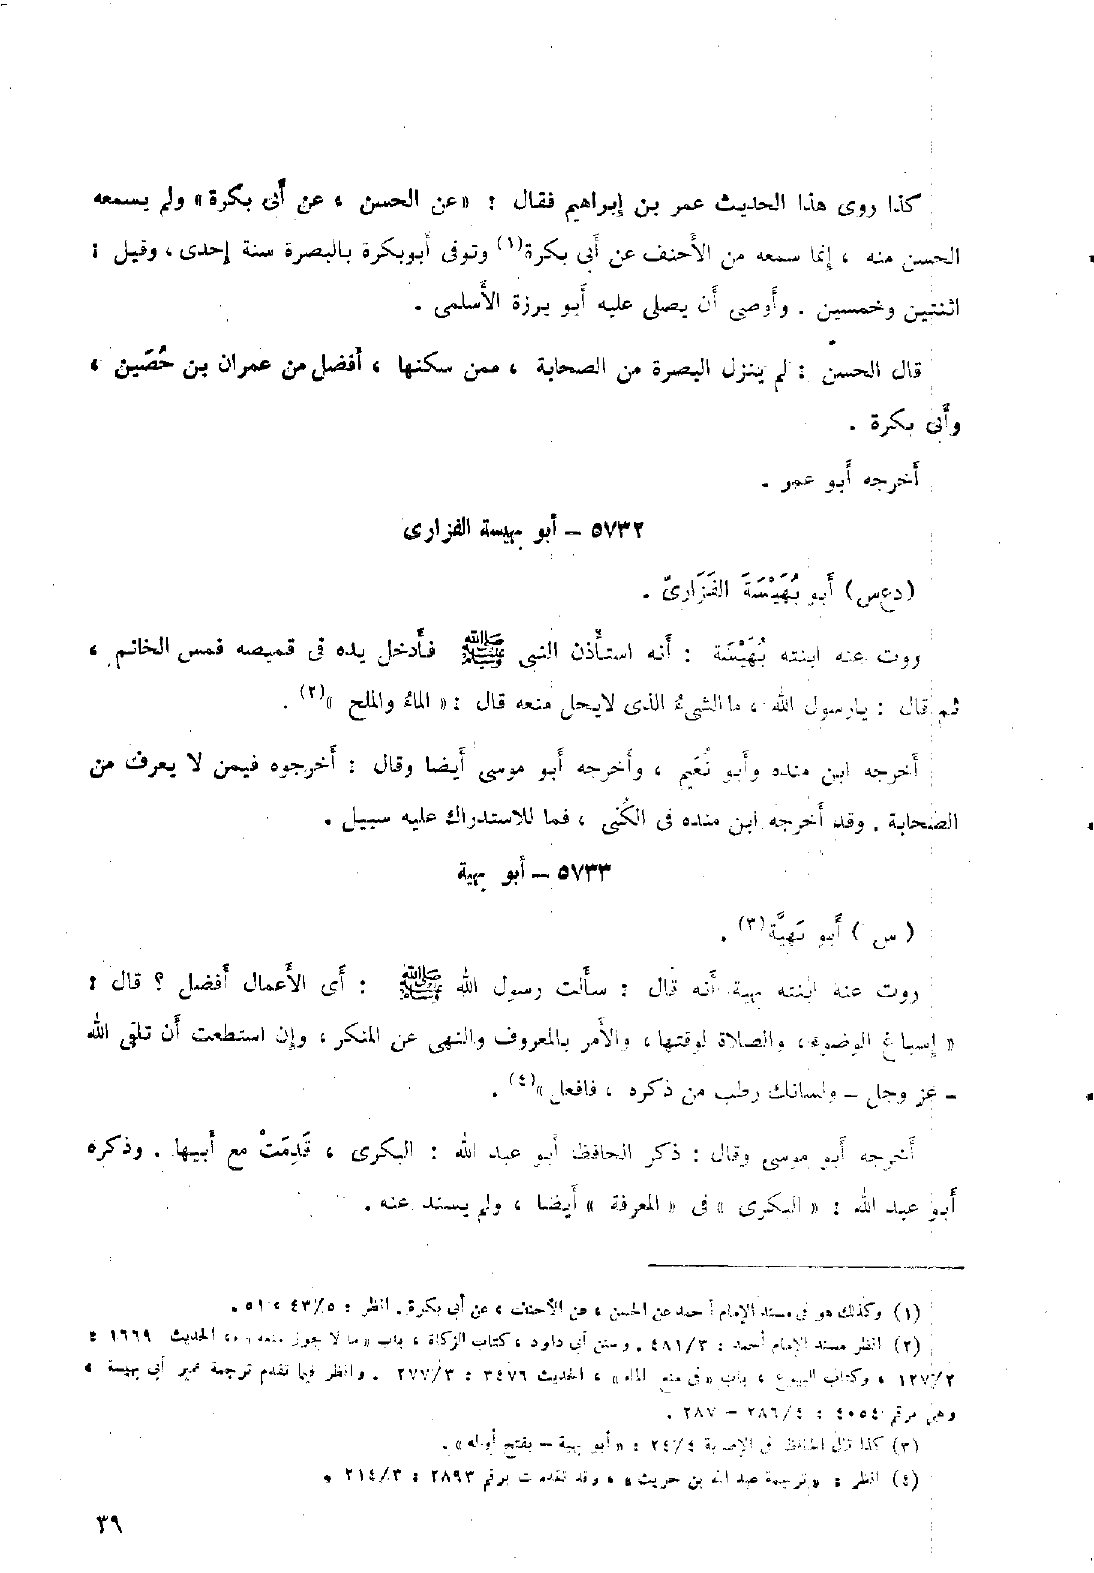 كذا روى هذا الحديث عمر بن إبراهيم فقال : «عن الحسن ، عن أبى بكرة» ولم يسمعه
الحسن منه ، إنما سمعه من الأحنف عن أبى بكرة(١) وتوفى أبوبكرة بالبصرة سنة إحدى ، وقيل :
اثنتين وخمسين . وأوصى أن يصلى عليه أبو برزة الأسلمى .
قال الحسن : لم ينزل البصرة من الصحابة ، ممن سكنها ، أفضل من عمران بن حُصَين ،
وأبى بكرة .
أخرجه أبو عمر .
٥٧٣٢ – أبو بهيسة الفزارى
(دعس) أَبو بُهَيْسَةَ الفَزَارىّ .
روت عنه ابنته بُهَيْسَة : أنه استأذن النبى ﷺ فأدخل يده فى قميصه فمس الخاتم ،
ثم قال : يارسول الله ، ما الشىءُ الذى لايحل منعه قال : « الماءُ والملح »(٢) .
أخرجه ابن منده وأبو نُعَيم ، وأخرجه أبو موسى أيضا وقال : أخرجوه فيمن لا يعرف من
الصحابة . وقد أخرجه ابن منده فى الكُنى ، فما للاستدراك عليه سبيل .
٥٧٣٣ – أبو بهية
( س ) أَبو بَهِيَّة(٣) .
روت عنه ابنته بهية أنه قال : سأَلت رسول الله ﷺ : أى الأعمال أفضل ؟ قال :
« إسباغ الوضوء ، والصلاة لوقتها ، والأمر بالمعروف والنهى عن المنكر ، وإن استطعت أن تلقى الله
– عز وجل – ولسانك رطب من ذكره ، فافعل »(٤) .
أخرجه أبو موسى وقال : ذكر الحافظ أبو عبد الله : البكرى ، قَدِمَتْ مع أبيها . وذكره
أبو عبد الله : « البكرى » فى « المعرفة » أيضا ، ولم يسند عنه .
(١) وكذلك هو فى مسند الإمام أحمد عن الحسن ، عن الأحنف ، عن أبى بكرة . انظر : ٤٣/٥ ، ٥١ .
(٢) انظر مسند الإمام أحمد : ٤٨١/٣ . وسنن أبى داود ، كتاب الزكاة ، باب «ما لا يجوز منعه» ، الحديث ١٦٦٩ :
١٢٧/٢ ، وكتاب البيوع ، باب «فى منع الماء» ، الحديث ٣٤٧٦ : ٢٧٧/٣ . وانظر فيما تقدم ترجمة عمير أبى بهيسة ،
وهى برقم ٤٠٥٤ : ٢٨٦/٤ – ٢٨٧ .
(٣) كذا قال الحافظ فى الإصابة ٢٤/٤ : «أبو بهية – بفتح أوله» .
(٤) انظر : «ترجمة عبد الله بن حريث» ، وقد تقدمت برقم ٢٨٩٣ : ٢١٤/٣ .
٣٩